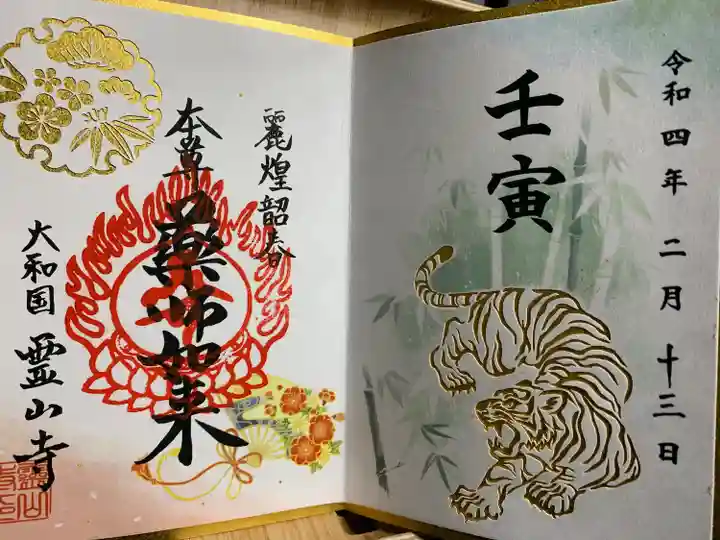 令和四年 二月 十三日
壬寅
麗煌韶春
本尊 薬師如来
大和国 霊山寺